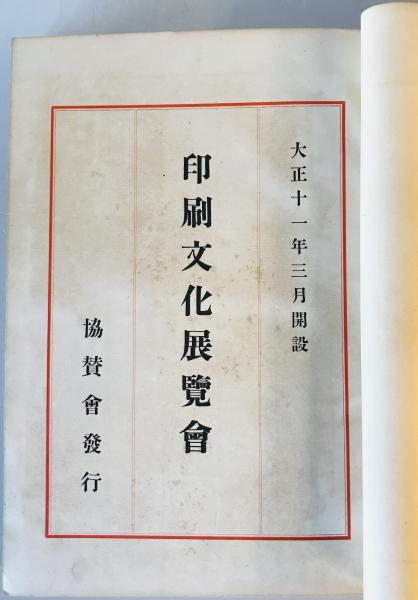 大正十一年三月開設
印刷文化展覽會
協賛會發行